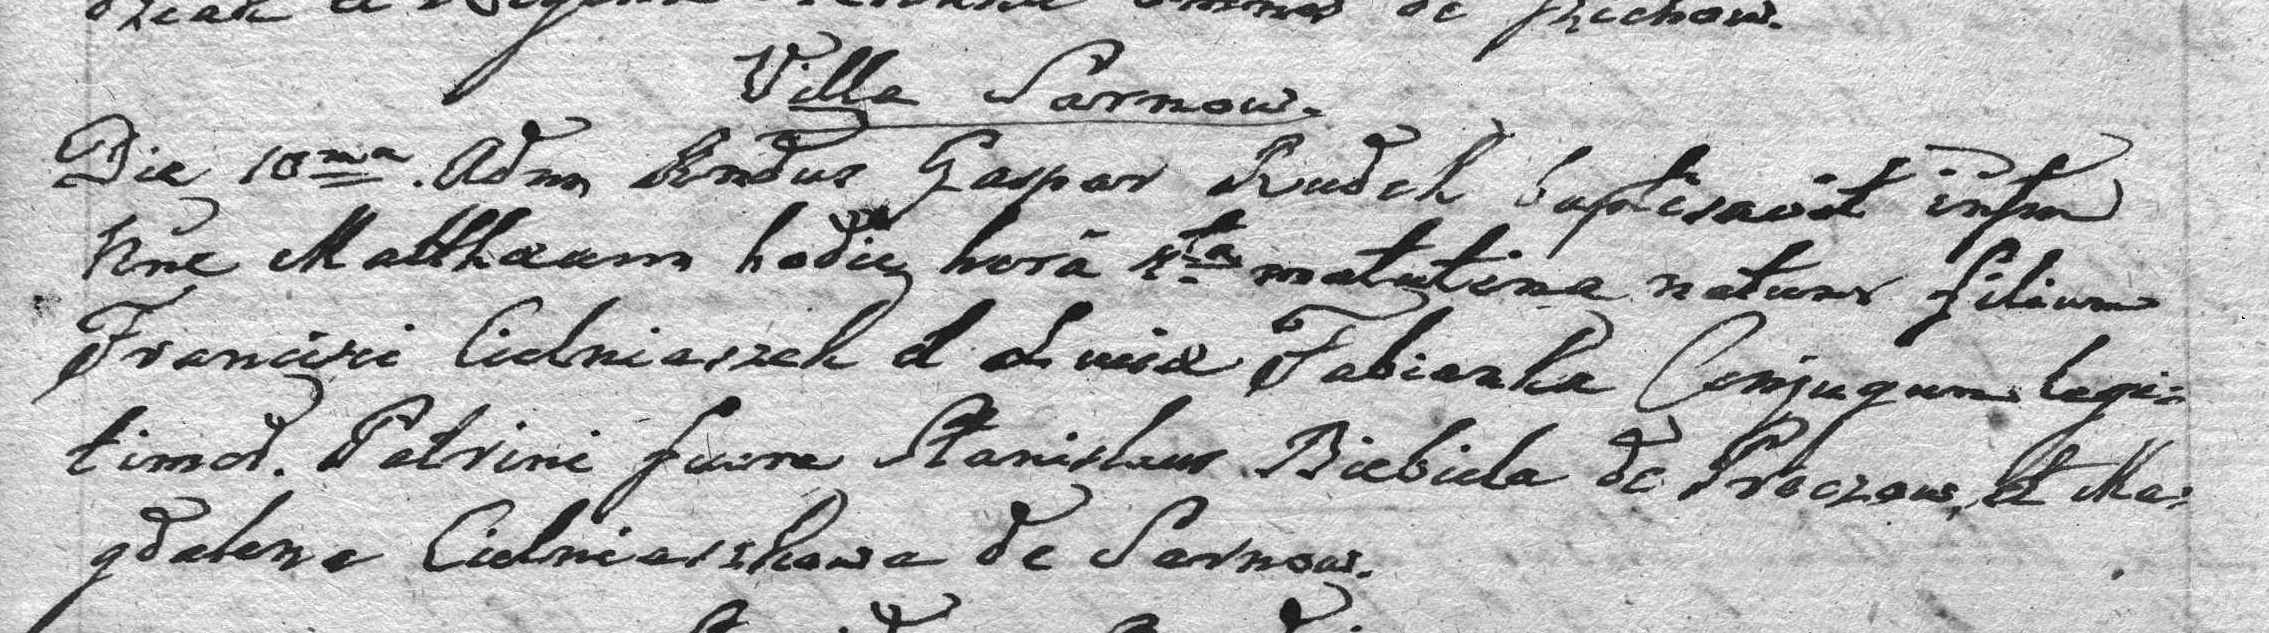 et omnes de
Villa Sarnow.
Die 10ma. Adm Rndus Gaspar Rudek baptisavit infan
hne Matthæum hodie horâ 4ta matutina natum filium
Francisci Cielniaszek et Luisæ Fabianka Conjugum legi=
timor. Patrini fuere Stanislaus Biebiela de Preczow, et Ma=
gdalena Cielniaszkowa de Sarnow.